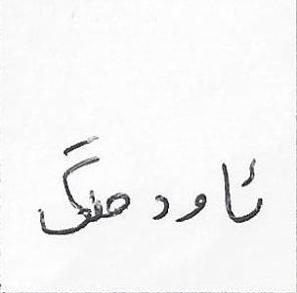 ئاودهنگ